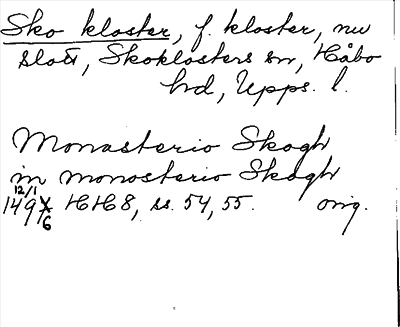 Sko kloster, f. kloster, nu
slott, Skoklosters sn, Håbo
hd, Upps. l.
Monasterio Skogh
in monosterio Skogh
12/1
1496 HH8, ss. 54, 55. orig.